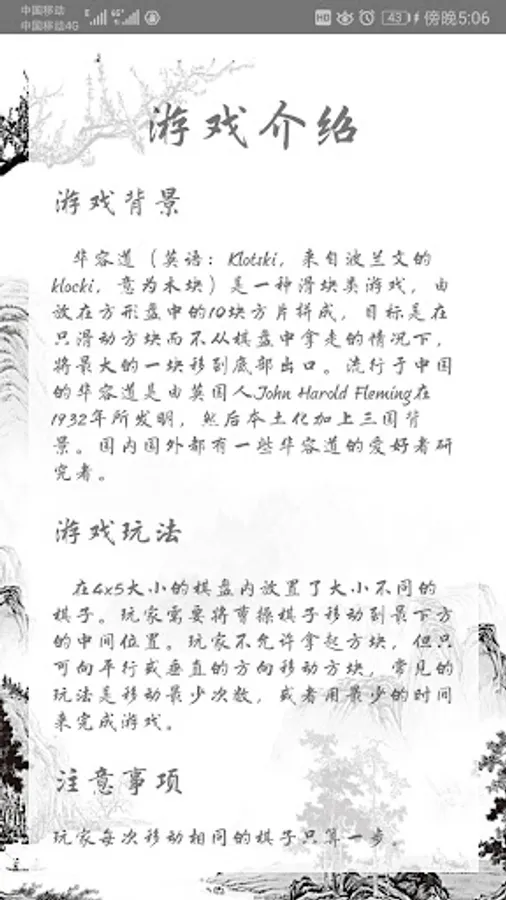 中国移动
中国移动4G
HD
43
傍晚5:06
游戏介绍
游戏背景
华容道（英语：Klotski，来自波兰文的
klocki，意为木块）是一种滑块类游戏，由
放在方形盘中的10块方片拼成，目标是在
只滑动方块而不从棋盘中拿走的情况下，
将最大的一块移到底部出口。流行于中国
的华容道是由英国人John Harold Fleming在
1932年所发明，然后本土化加上三国背
景。国内国外都有一些华容道的爱好者研
究者。
游戏玩法
在4x5大小的棋盘内放置了大小不同的
棋子。玩家需要将曹操棋子移动到最下方
的中间位置。玩家不允许拿起方块，但只
可向平行或垂直的方向移动方块，常见的
玩法是移动最少次数，或者用最少的时间
来完成游戏。
注意事项
玩家每次移动相同的棋子只算一步。